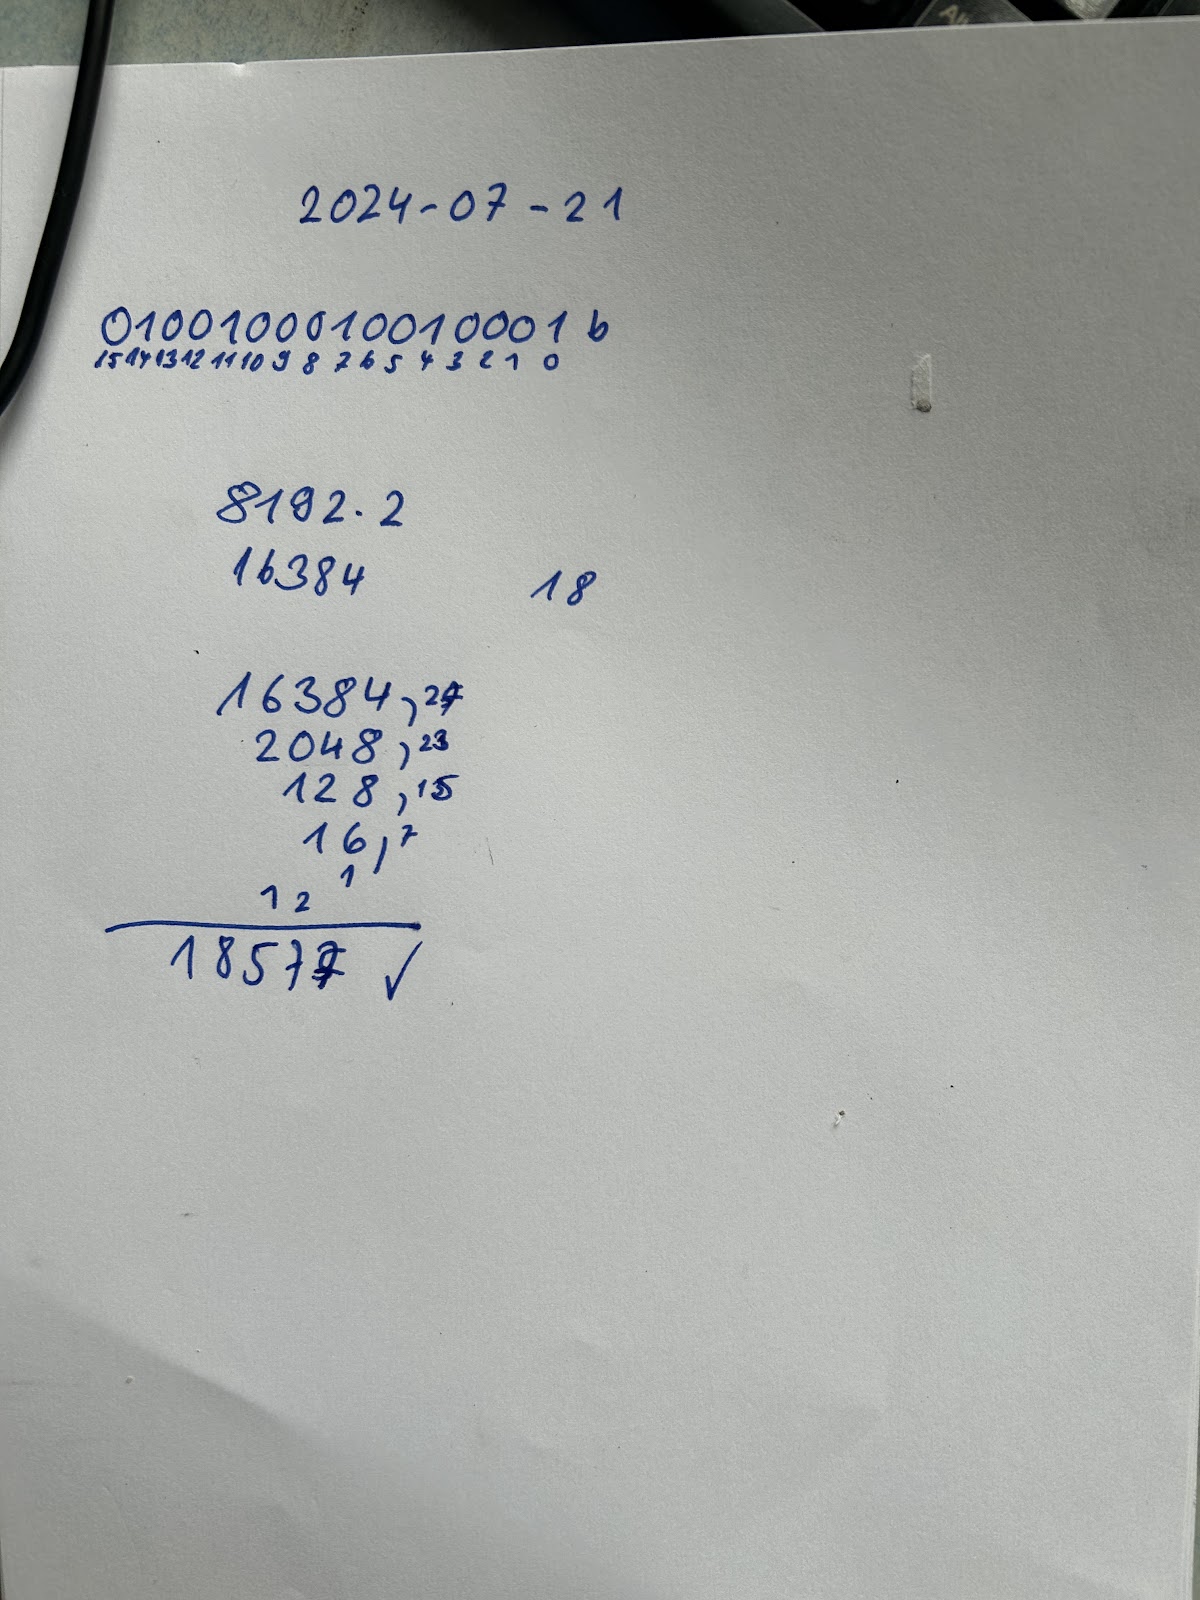 2024-07-21
0100100010010001 b
15 14 13 12 11 10 9 8 7 6 5 4 3 2 1 0
8192.2
16384
18
16384, 27
2048, 23
128, 15
16, 7
1
1 2
18577 ✓